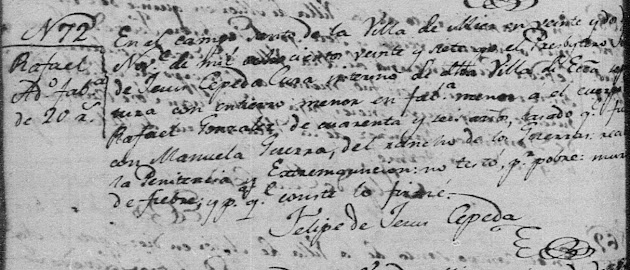 N 72.
Rafael
Ad.º fab.ª
de 20 r.s
En el campo Santo de la Villa de Mier en veinte y dos
Nov.e de mil ocho cientos veinte y siete yo el Presbytero
de Jesus Cepeda Cura interino de dha Villa di Ecca
tura con entierro menor en fab.ª menor a el cuerpo
Rafael Gonzalez, de cuarenta y seis años, casado q.e fue
con Manuela Guerra, del rancho de los Guerras:
la Penitencia y Extremauncion: no testó, p.r pobre: murio
de fiebre; y p.a q.e conste lo firmé.
Felipe de Jesus Cepeda